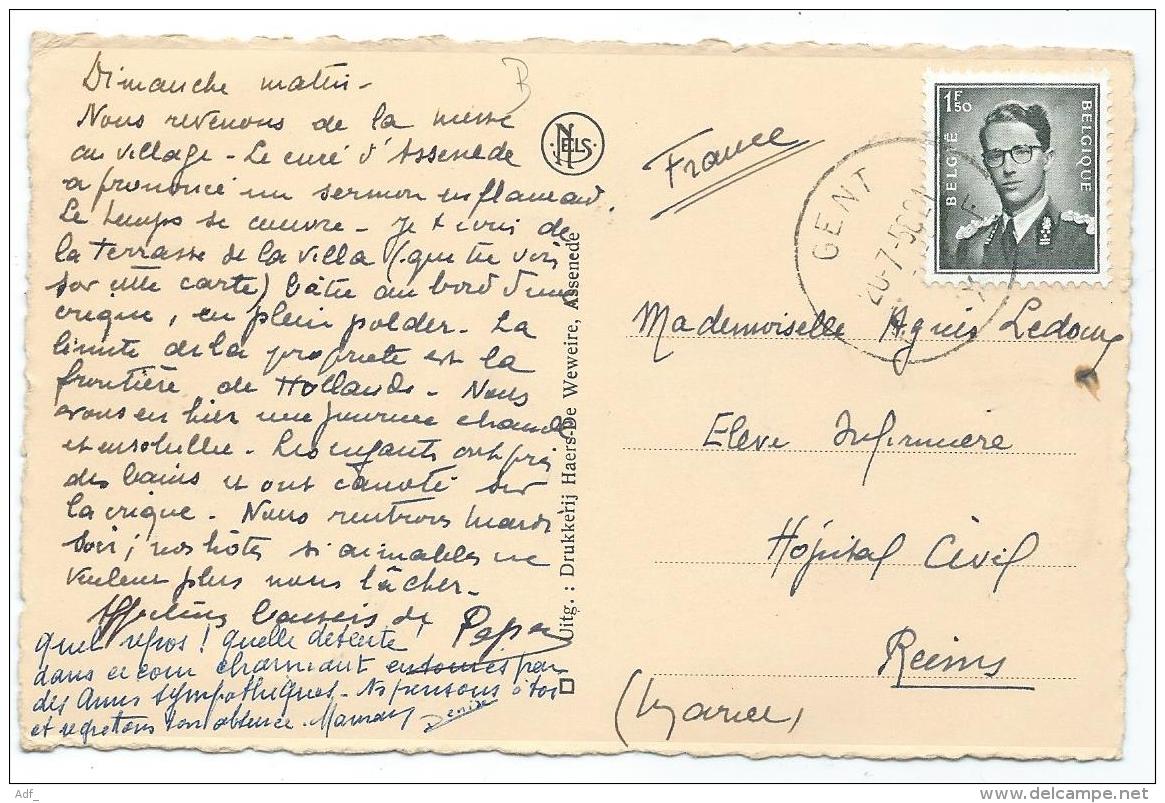 Dimanche matin -
Nous revenons de la messe
au village - Le curé d'Assenede
a prononcé un sermon en flamand.
Le temps se couvre - Je t'écris de
la terrasse de la villa (que tu vois
sur cette carte) bâtie au bord d'une
crique, en plein polder - La
limite de la propriété est la
frontière de Hollande - Nous
avons eu hier une journée chaude
et ensoleillée - Les enfants ont pris
des bains et ont canoté sur
la crique - Nous rentrons Mardi
soir ; nos hôtes si aimables ne
veulent plus nous lâcher -
Affectueux baisers de Papa
quel repos ! quelle détente
dans ce coin charmant entourés par
des Amis sympathiques - Ns pensons à toi
et regrettons ton absence - Maman
Denise
NELS
Uitg. : Drukkerij Haers-De Weweire, Assenede
France
1F50
BELGIË
BELGIQUE
GENT
20-7-58
Mademoiselle Agnès Ledoux
Elève Infirmière
Hôpital Civil
Reims
(Marne)
Adf_
www.delcampe.net